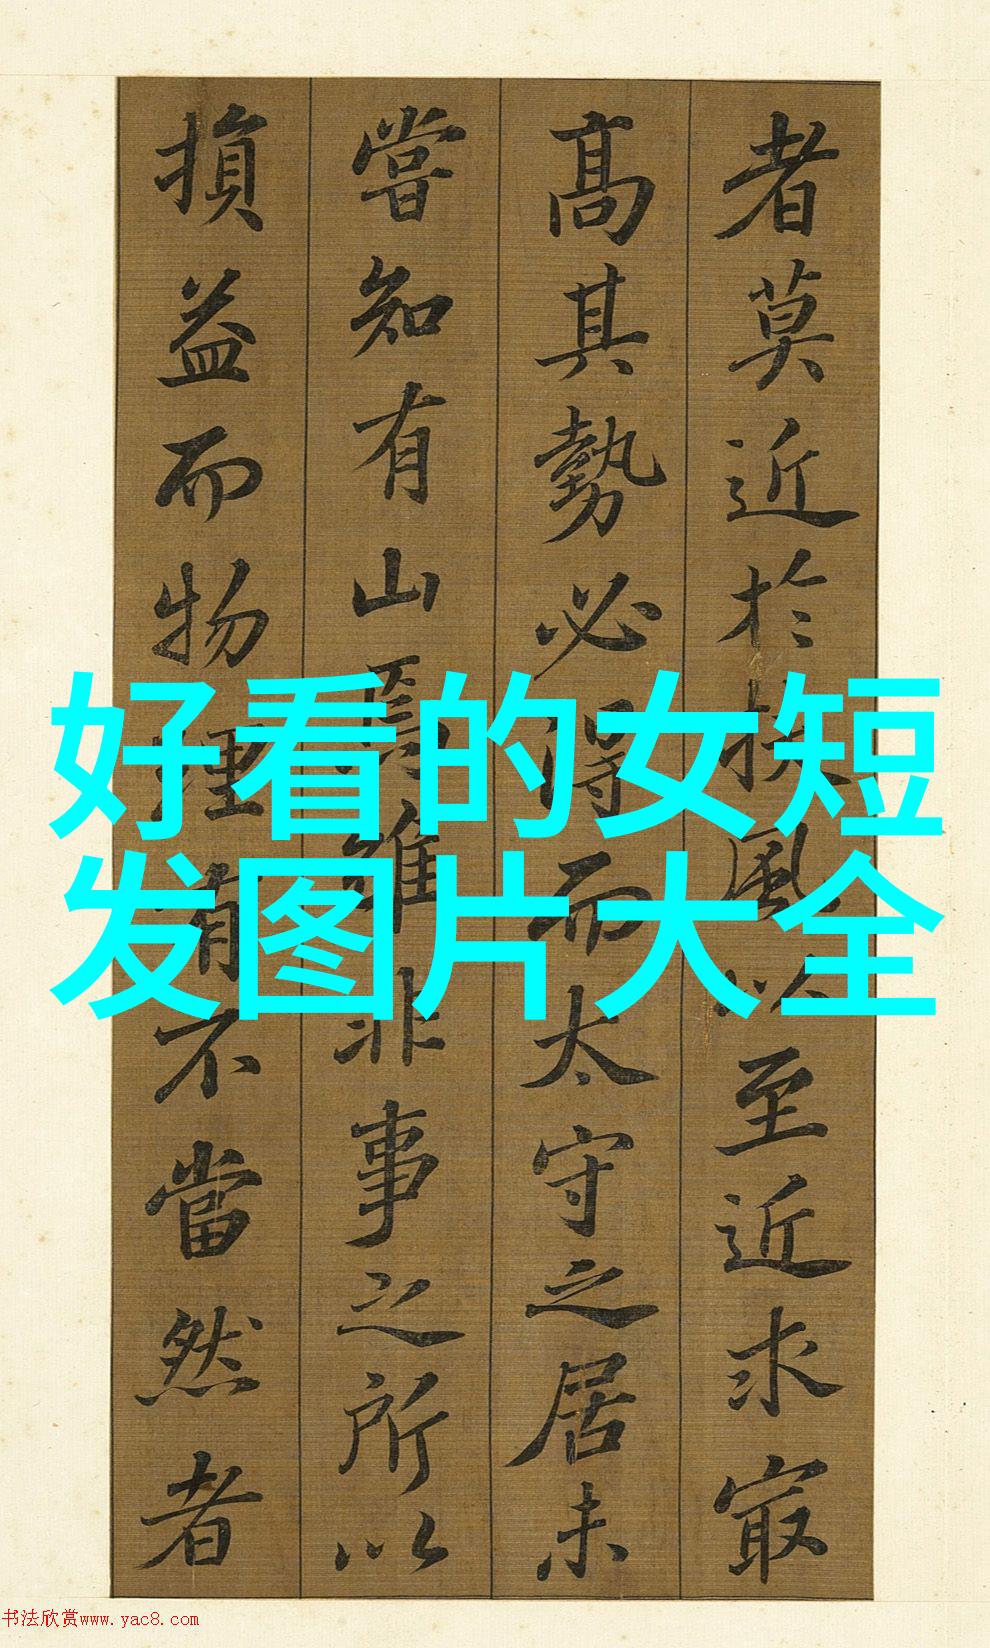 者莫近於扶風以至近求㝡
髙其勢必得而太守之居未
嘗知有山焉雖非事之所以
損益而物理有不當然者
好看的女短
发图片大全
书法欣赏www.yac8.com